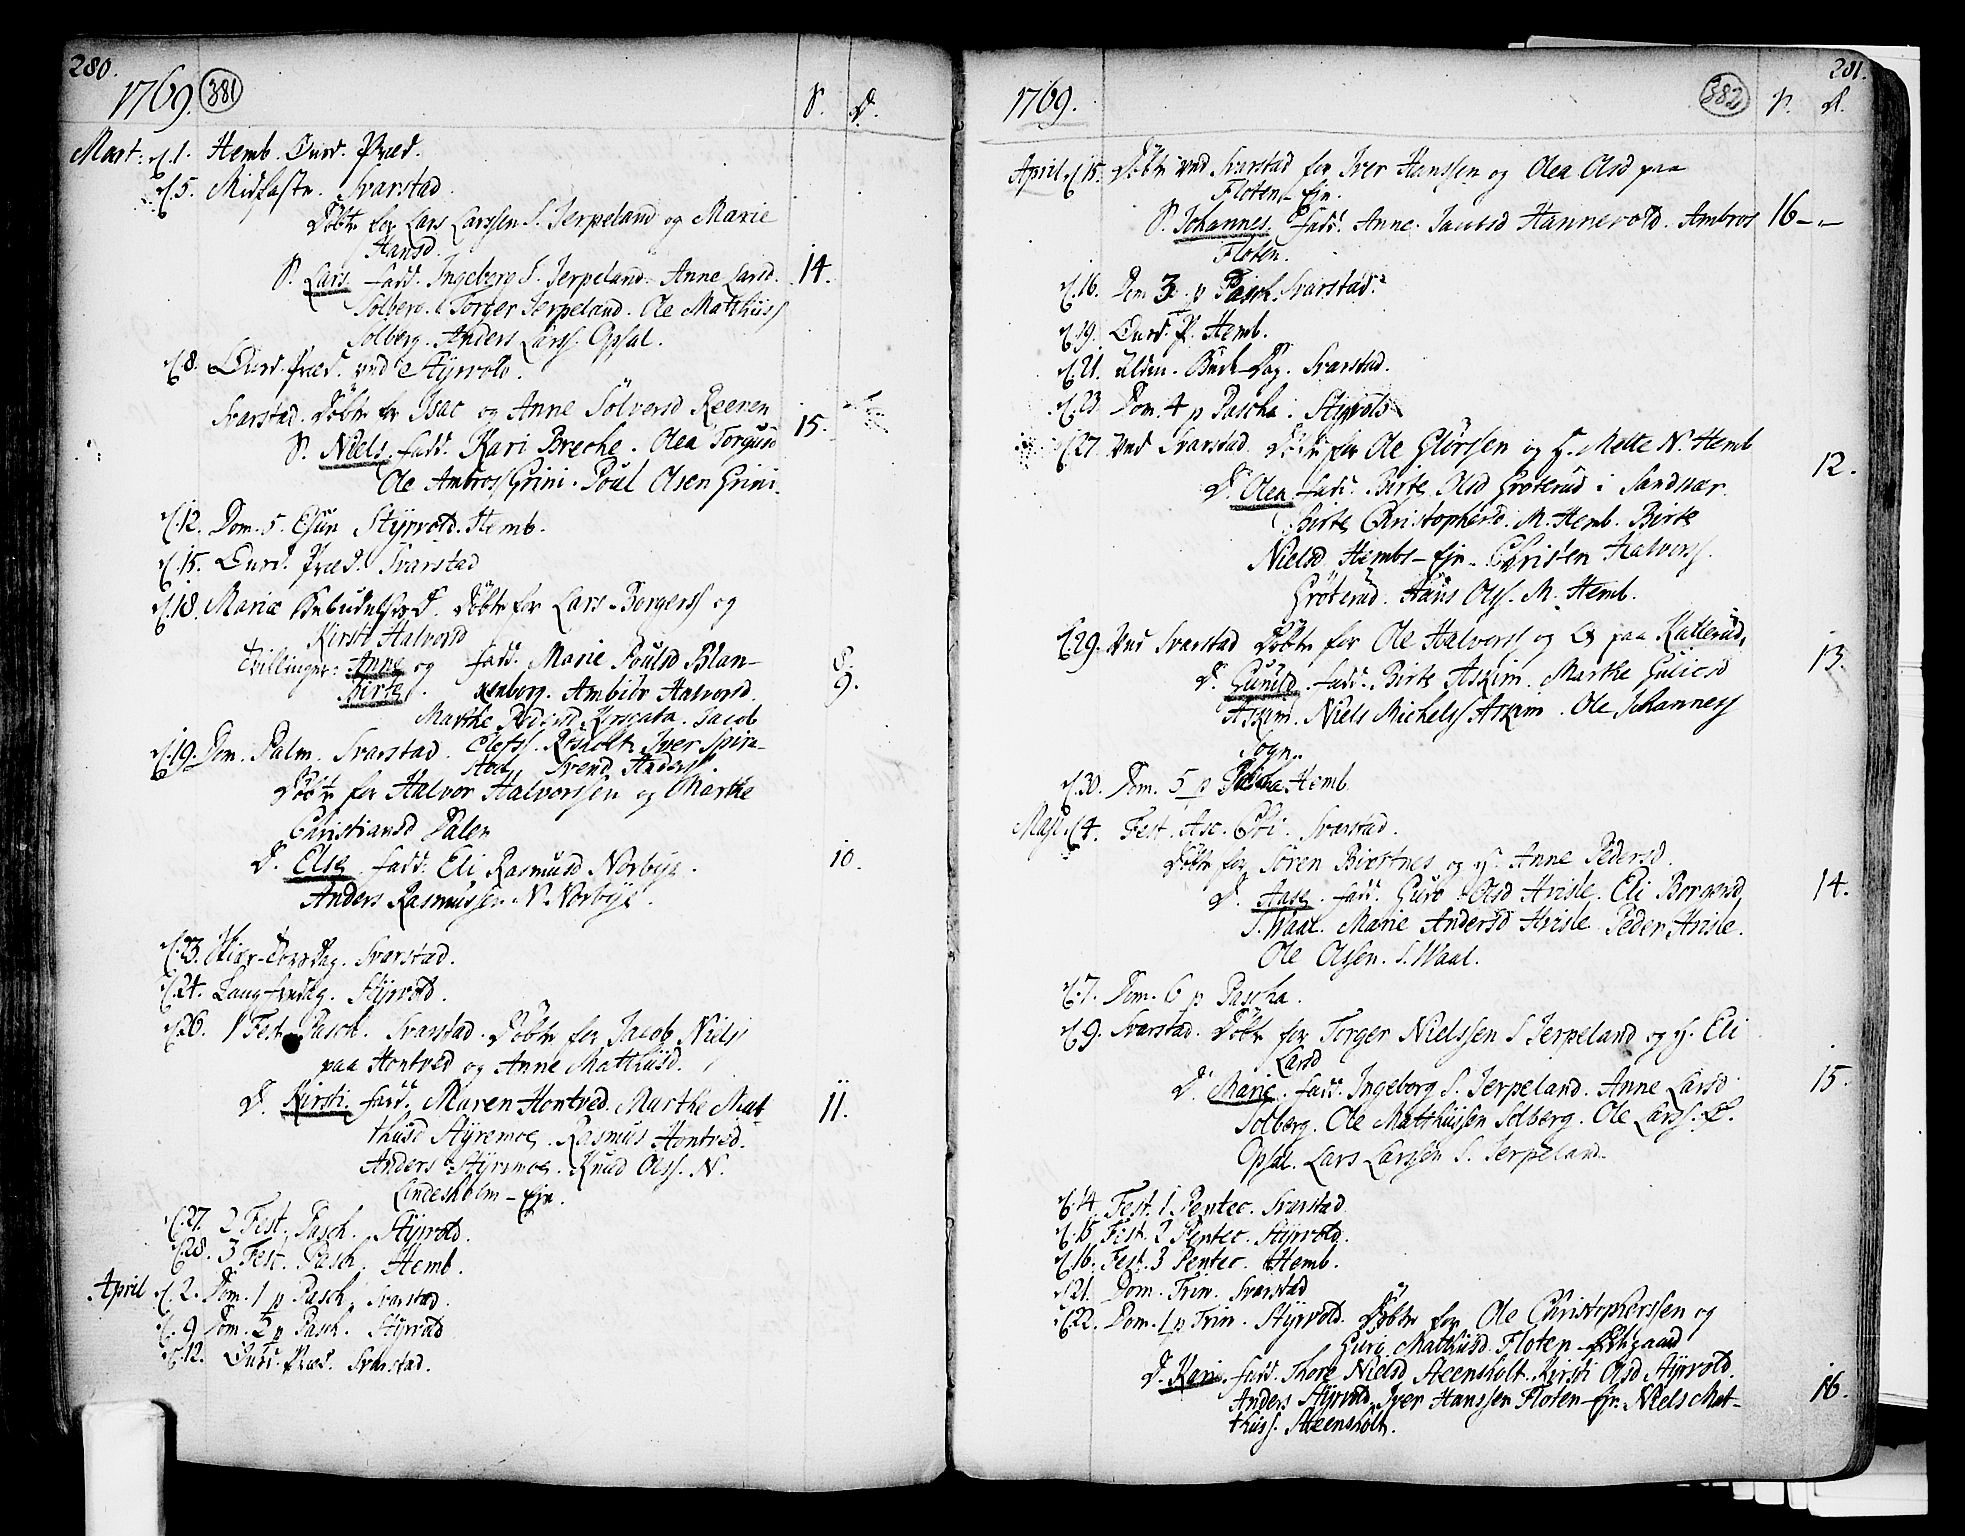 280.
1769. 381 S. D.
Mart: d. 1. Hemb. Ourd. Præd.
d. 5. Midfaste. Svarstad.
Döbt for Lars Larssen S. Jerpeland og Marie
Hansd.
S. Lars. fadd. Ingeberg S. Jerpeland. Anne Larsd. 14.
Solberg. Torger Jerpeland. Ole Matthiiss
Solberg. Anders Larss. Opsal.
d. 8. Ourd. Præd. ved Styrvold.
Svarstad. Döbt for Isac og Anne Sölversd Reeren
S. Niels. fadd. Kari Breche. Olea Torgusd 15.
Ole Ambross Grini. Poul Olsen Grini.
d. 12. Dom. 5. Esun Styrvold. Hemb.
d. 15. Ourd. Præd. Svarstad
d. 18. Mariæ Bebudelses D. Döbt for Lars Borgerss og
Kirsti Halvorsd
Tvillinger: Anne og fadd. Marie Poulsd Blan- 8.
Birte. kenborg. Ambiör Halvorsd. 9.
Marthe Pedersd. Jacob
d. 19. Dom. Palm. Svarstad. Olefss. Rösholt. Iver Spira-
Svend Anderss.
Döbt for Halvor Halvorssen og Marthe
Christiansd Dalen
D. Else. fadd. Eli Rasmusd Norbye. 10.
Anders Rasmussen N. Norbye.
d. 23. Skiær-Torsdag. Svarstad.
d. 24. Lang-fredag. Styrvold.
d. 26. 1 Fest. Pasch. Svarstad. Döbt for Jacob Nielss
paa Hontved og Anne Matthiisd.
D. Kirsti. fadd. Maren Hontved. Marthe Mat- 11.
thiisd Styremoe. Rasmus Hontved.
Anders Styremoe. Knud Olss. N.
Lindesholm-Eje.
d. 27. 2 Fest. Pasch. Styrvold.
d. 28. 3 Fest. Pasch. Hemb.
April d. 2. Dom. 1 p Pasch. Svarstad.
d. 9 Dom. 2 p Pasch. Styrvold
d. 12. Ourd. Præd. Svarstad.
281.
1769. 382 S. D.
April d. 15. Döbt ved Svarstad for Iver Hanssen og Olea Olsd paa
Floten-Eje.
S. Johannes. fadd. Anne Jacobsd Hannevold. Ambros 16-
Floten.
d. 16. Dom 3. p Pasch. Svarstad.
d. 19. Ourd. P. Hemb.
d. 21. Bede-Dag. Svarstad.
d. 23. Dom. 4 p Pascha. Styrvold
d. 27. ved Svarstad. Döbt for Ole Glörssen og H. Mette N. Hemb
D. Olea. fadd. Birte Olsd Gröterud i Sandsvær. 12.
Birte Christophersd. M. Hemb. Birte
Nielsd Hembs-Eje. Christen Halvorss.
Gröterud. Hans Olss. M. Hemb.
d. 29. ved Svarstad Döbt for Ole Halvorss og paa Katterud.
D. Gunild. fadd. Birte Askim. Marthe Guliesd 13.
Askim. Niels Michelss Askim. Ole Johanness
Sogn.
d. 30. Dom. 5 p Pascha Hemb
Maji. d. 4. Fest. Asc. Chri. Svarstad.
Döbt for Sören Birstnes og H. Anne Pedersd.
D. Aase. fadd. Guro Olsd Hvisle. Eli Borgersd 14.
S. Waal. Marie Andersd Hvisle. Peder Hvisle.
Ole Olssen. S. Waal.
d. 7. Dom. 6 p Pascha.
d. 9. Svarstad. Döbt for Torger Nielssen S Jerpeland og H. Eli
Larsd
D. Marie. fadd. Ingeborg S. Jerpeland. Anne Larsd 15.
Solberg. Ole Matthiissen Solberg. Ole Larss.
Opsal. Lars Larssen S. Jerpeland.
d. 14. Fest. 1 Pentec. Svarstad
d. 15. Fest. 2 Pentec. Styrvold.
d. 16. Fest. 3 Pentec. Hemb.
d. 21. Dom. Trin. Svarstad
d. 22. Dom. 1 p Trin. Styrvold. Döbt for Ole Christopherssen og
Guri Mathiisd. Floten
D. Kari. fadd. Thore Nielsd Steensholt. Kirsti Olsd Styrvold. 16.
Anders Styrvold. Iver Hanssen Floten-Eje. Niels Mat-
thiiss. Steensholt.